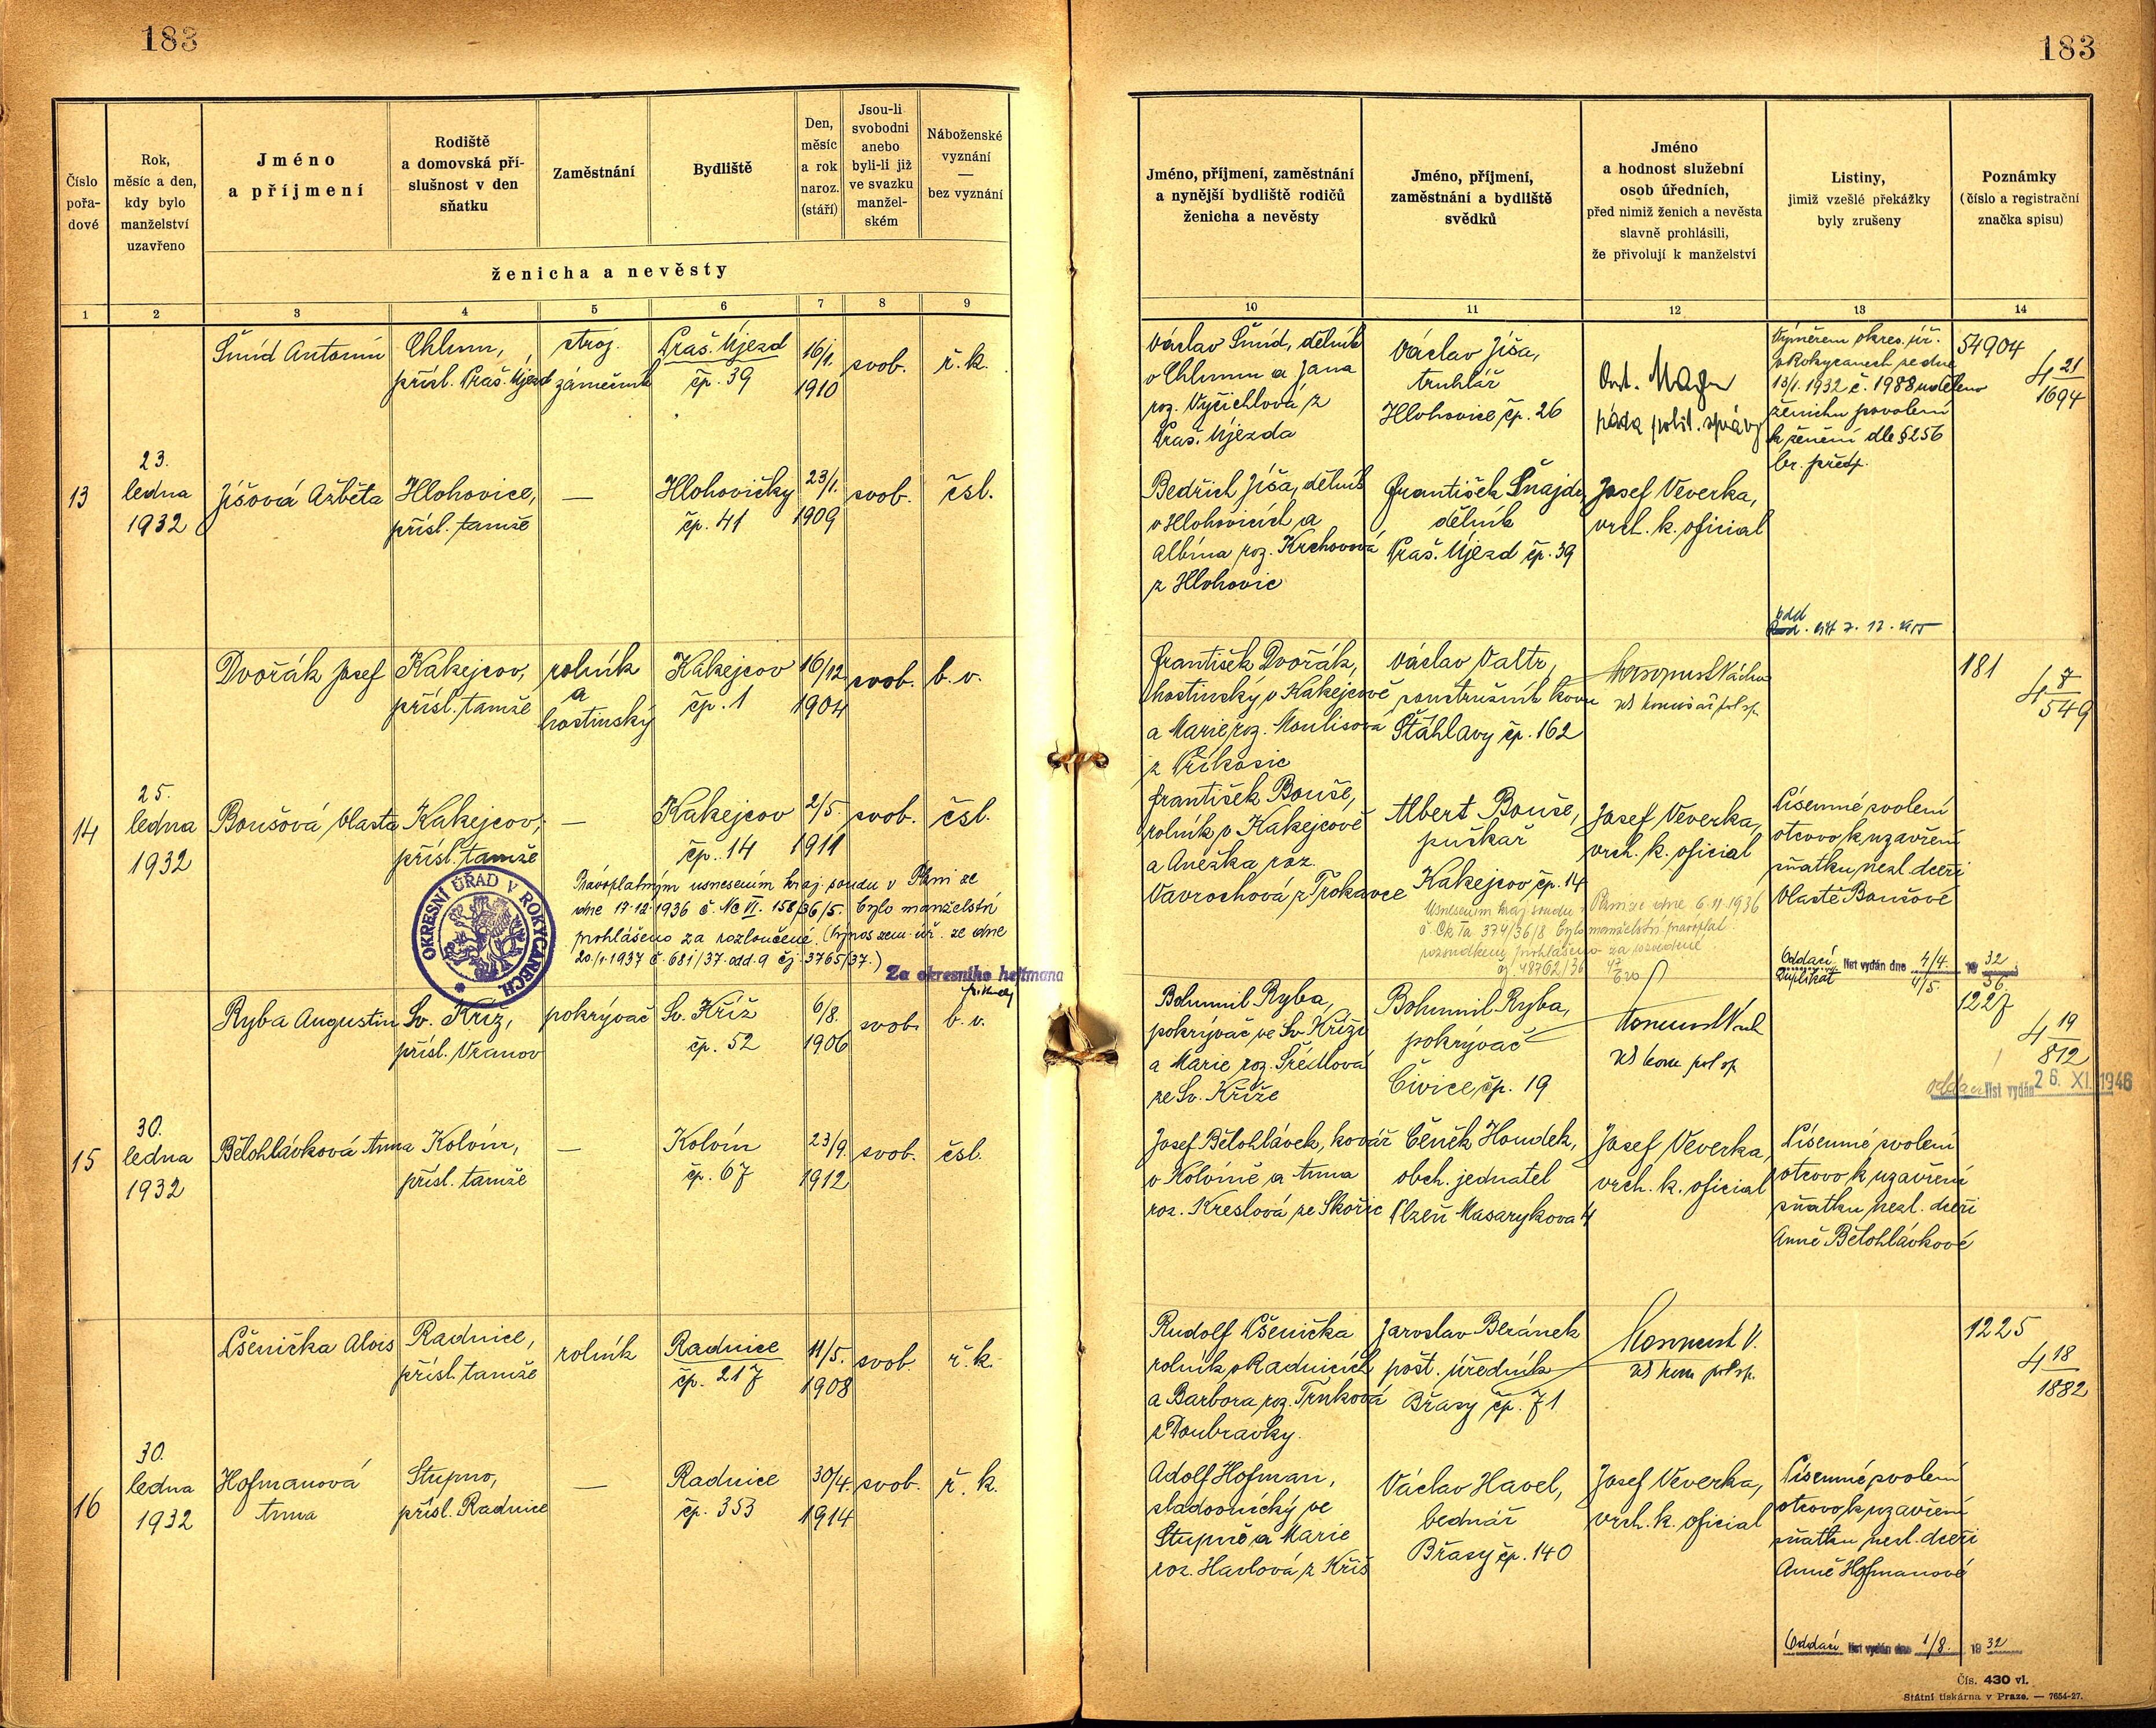 183
183
Číslo
pořa-
dové
Rok,
měsíc a den,
kdy bylo
manželství
uzavřeno
Jméno
a příjmení
Rodiště
a domovská pří-
slušnost v den
sňatku
Zaměstnání
Bydliště
Den,
měsíc
a rok
naroz.
(stáří)
Jsou-li
svobodni
anebo
byli-li již
ve svazku
manžel-
ském
Náboženské
vyznání
—
bez vyznání
ženicha a nevěsty
1 2 3 4 5 6 7 8 9
Jméno, příjmení, zaměstnání
a nynější bydliště rodičů
ženicha a nevěsty
Jméno, příjmení,
zaměstnání a bydliště
svědků
Jméno
a hodnost služební
osob úředních,
před nimiž ženich a nevěsta
slavně prohlásili,
že přivolují k manželství
Listiny,
jimiž vzešlé překážky
byly zrušeny
Poznámky
(číslo a registrační
značka spisu)
10 11 12 13 14
Šmíd Antonín
Chlum,
přísl. Praš. Újezd
stroj.
zámečník
Praš. Újezd
čp. 39
16/1.
1910
svob.
ř. k.
Václav Šmíd, dělník
v Chlumu a Jana
roz. Vyčichlová z
Praš. Újezda
Václav Jíša,
truhlář
Hlohovice, čp. 26
rada polit. správy
Výměrem okres. úř.
v Rokycanech ze dne
13/1. 1932 č. 1988 uděleno
ženichu povolení
k ženění dle § 256
br. předp.
54904
4 21
1694
13
23.
ledna
1932
Jíšová Alžběta
Hlohovice,
přísl. tamže
—
Hlohovičky
čp. 41
23/1.
1909
svob.
čsl.
Bedřich Jíša, dělník
v Hlohovicích a
Albína roz. Krchovová
z Hlohovic
František Šnajdr,
dělník
Praš. Újezd čp. 39
Josef Veverka,
vrch. k. oficial
odd
Dvořák Josef
Kakejcov,
přísl. tamže
rolník
a
hostinský
Kakejcov
čp. 1
16/12.
1904
svob.
b. v.
František Dvořák,
hostinský v Kakejcově
a Marie roz. Moulisová
z Příkosic
Václav Valtr,
soustružník kovu
Šťáhlavy čp. 162
181
4 8
549
14
25.
ledna
1932
Boušová Vlasta
Kakejcov,
přísl. tamže
—
Kakejcov
čp. 14
2/5.
1911
svob.
čsl.
František Bouše,
rolník v Kakejcově
a Anežka roz.
Vavrochová z Trokavce
Albert Bouše,
puškař
Kakejcov čp. 14
Josef Veverka,
vrch. k. oficial
Písemné svolení
otcovo k uzavření
sňatku nezl. dceři
Vlastě Boušové
Pravoplatným usnesením kraj. soudu v Plzni ze
dne 17.12.1936 č. Nc VI. 158/36/5. bylo manželství
prohlášeno za rozloučené. (Výnos zem. úř. ze dne
20./1. 1937 č. 681/37. odd. 9 čj 3765/37.)
OKRESNÍ ÚŘAD V ROKYCANECH
Za okresního hejtmana
Usnesením kraj. soudu v Plzni ze dne 6.11.1936
č. Ck Ia 374/36/8 bylo manželství pravoplat.
rozsudkem prohlášeno za rozvedené
čj. 48762/36
Oddací list vydán dne 4/4. 1932
Duplikát 4/5. 36.
Ryba Augustin
Sv. Kříž,
přísl. Vranov
pokrývač
Sv. Kříž
čp. 52
6/8.
1906
svob.
b. v.
Bohumil Ryba,
pokrývač ve Sv. Kříži
a Marie roz. Šrédlová
ze Sv. Kříže
Bohumil Ryba,
pokrývač
Čivice, čp. 19
1227
4 19
812
oddací list vydán 26. XI. 1946
15
30.
ledna
1932
Bělohlávková Anna
Kolvín,
přísl. tamže
—
Kolvín
čp. 67
23/9.
1912
svob.
čsl.
Josef Bělohlávek, kovář
v Kolvíně a Anna
roz. Kreslová ze Skořic
Čeněk Houdek,
obch. jednatel
Plzeň Masarykova 4
Josef Veverka,
vrch. k. oficial
Písemné svolení
otcovo k uzavření
sňatku nezl. dceři
Anně Bělohlávkové
Pšenička Alois
Radnice,
přísl. tamže
rolník
Radnice
čp. 217
11/5.
1908
svob.
ř. k.
Rudolf Pšenička
rolník v Radnicích
a Barbora roz. Trnková
z Doubravky.
Jaroslav Beránek
pošt. úředník
Břasy čp. 71
1225
4 18
1882
16
30.
ledna
1932
Hofmanová
Anna
Stupno,
přísl. Radnice
—
Radnice
čp. 353
30/4.
1914
svob.
ř. k.
Adolf Hofman,
sladovnický ve
Stupně a Marie
roz. Havlová z Kříš
Václav Havel,
bednář
Břasy čp. 140
Josef Veverka,
vrch. k. oficial
Písemné svolení
otcovo k uzavření
sňatku nezl. dceři
Anně Hofmanové
Oddací list vydán dne 1/8. 1932
Čís. 430 vl.
Státní tiskárna v Praze. — 7654-27.